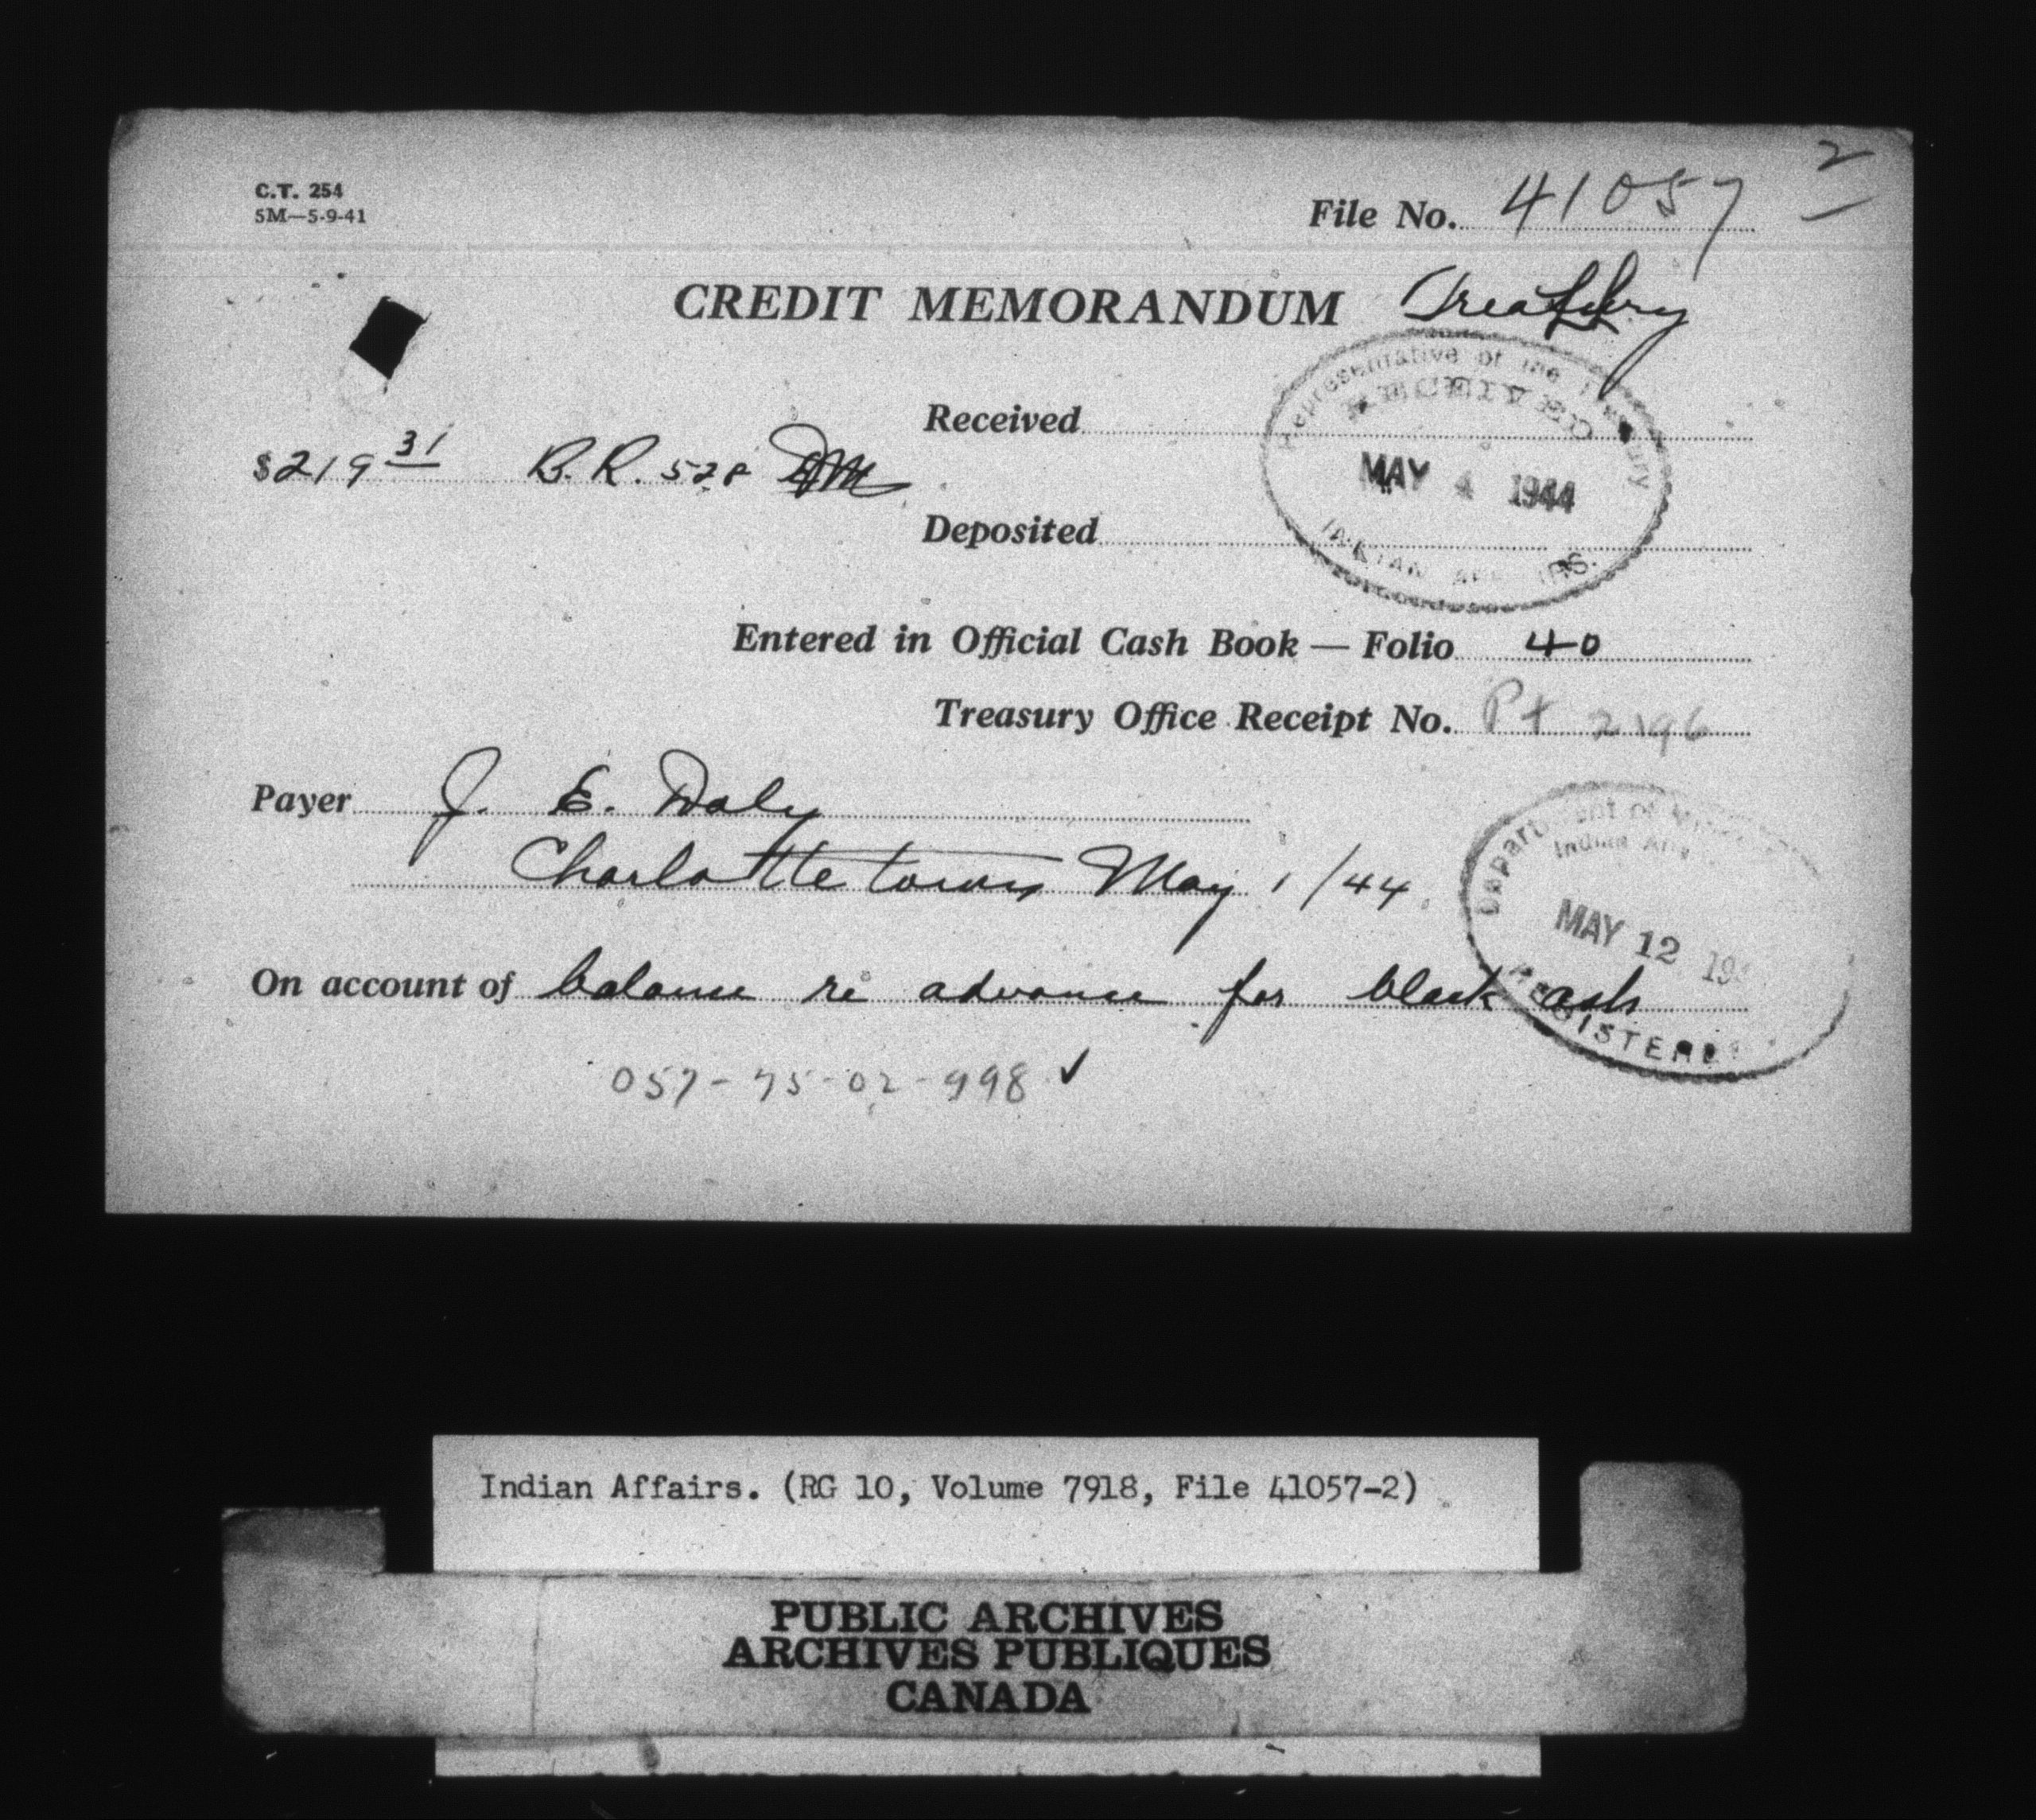 C.T. 254
5M—5-9-41
File No. 41057 2
CREDIT MEMORANDUM
Representative of the Treasury
RECEIVED
MAY 4 1944
INDIAN AFFAIRS.
Received
$219 31 B.R. 528
Deposited
Entered in Official Cash Book — Folio 40
Treasury Office Receipt No. Pt 2196
Payer J. E. Daly
Charlottetown May 1/44
Department of
Indian
MAY 12 19
REGISTERED
On account of balance re advance for black ash
057-75-02-998 ✓
Indian Affairs. (RG 10, Volume 7918, File 41057-2)
PUBLIC ARCHIVES
ARCHIVES PUBLIQUES
CANADA